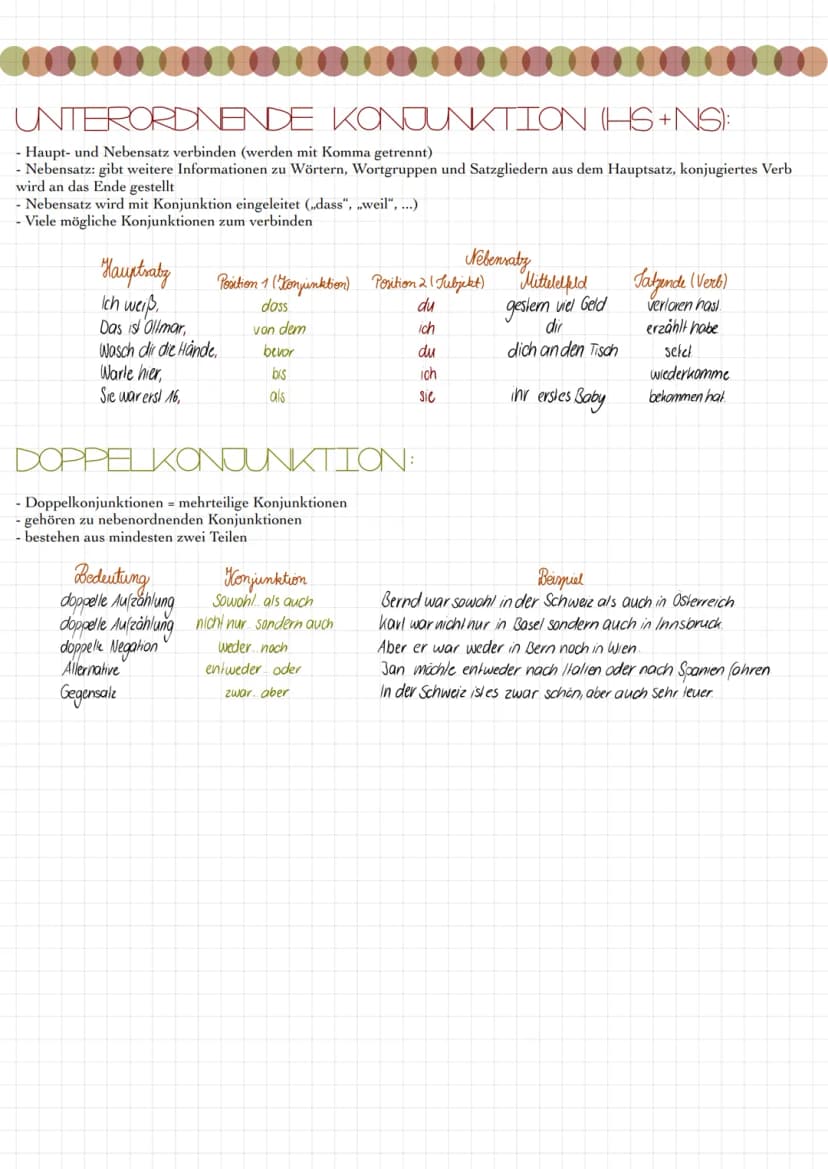 UNTERORDNENDE KONJUNKTION (HS+NS):
- Haupt- und Nebensatz verbinden (werden mit Komma getrennt)
- Nebensatz: gibt weitere Informationen zu Wörtern, Wortgruppen und Satzgliedern aus dem Hauptsatz, konjugiertes Verb
wird an das Ende gestellt
- Nebensatz wird mit Konjunktion eingeleitet („dass“, „weil“, ...)
- Viele mögliche Konjunktionen zum verbinden
Nebensatz
Hauptsatz Position 1 (Konjunktion) Position 2 (Subjekt) Mittelfeld Satzende (Verb)
Ich weiß, dass du gestern viel Geld verloren hast.
Das ist Ottmar, von dem ich dir erzählt habe
Wasch dir die Hände, bevor du dich an den Tisch setzt
Warte hier, bis ich wiederkomme
Sie war erst 16, als sie ihr erstes Baby bekommen hat.
DOPPELKONJUNKTION:
- Doppelkonjunktionen = mehrteilige Konjunktionen
- gehören zu nebenordnenden Konjunktionen
- bestehen aus mindesten zwei Teilen
Bedeutung Konjunktion Beispiel
doppelte Aufzählung Sowohl.. als auch Bernd war sowohl in der Schweiz als auch in Österreich
doppelte Aufzählung nicht nur.. sondern auch Karl war nicht nur in Basel sondern auch in Innsbruck.
doppelte Negation weder.. noch Aber er war weder in Bern noch in Wien.
Alternative entweder.. oder Jan möchte entweder nach Italien oder nach Spanien fahren
Gegensatz zwar.. aber In der Schweiz ist es zwar schön, aber auch sehr teuer.